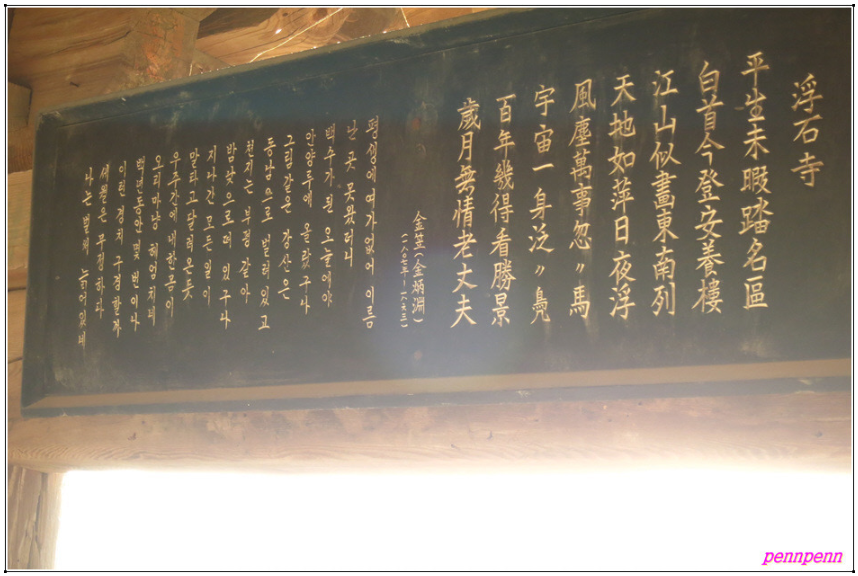 浮石寺
平生未暇踏名區
白首今登安養樓
江山似畵東南列
天地如萍日夜浮
風塵萬事忽〃馬
宇宙一身泛〃鳧
百年幾得看勝景
歲月無情老丈夫
金笠(金炳淵)
(一八〇七年~一八六三)
평생에 여가 없어 이름
난 곳 못 왔더니
백수가 된 오늘에야
안양루에 올랐구나
그림같은 강산은
동남으로 벌려 있고
천지는 부평 같아
밤낮으로 떠 있구나
지나간 모든 일이
말타고 달려온 듯
우주간에 내 한몸이
오리마냥 헤엄치네
백년동안 몇 번이나
이런 경치 구경할까
세월은 무정하다
나는 벌써 늙어있네
pennpenn